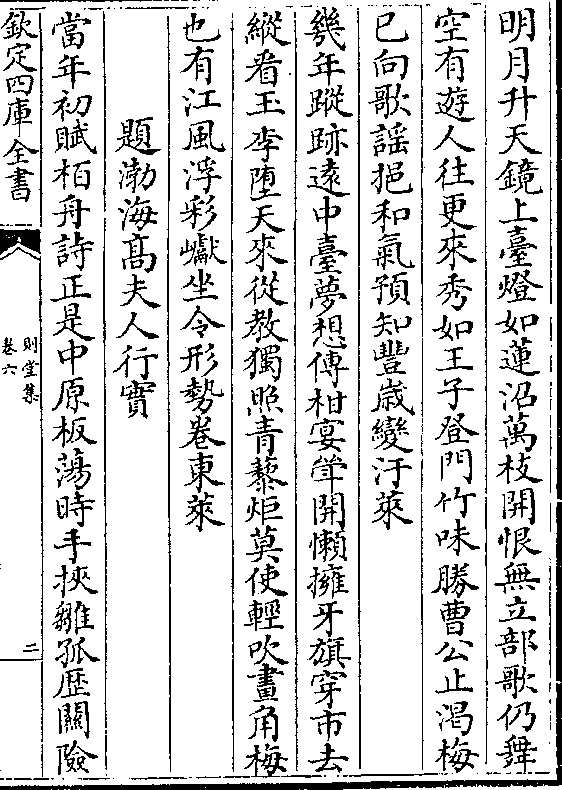 明月升天鏡上臺燈如蓮沼萬枝開恨無立部歌仍舞
空有遊人往更來秀如王子登門竹味勝曹公止渴梅
已向歌謡挹和氣預知豐歳變汙萊
幾年蹤跡逺中臺夢想傳柑宴斚開懶擁牙旗穿市去
縱看玉李墮天來從教獨照青藜炬莫使輕吹畫角梅
也有江風浮彩巘坐令形勢卷東萊
題渤海髙夫人行實
當年初賦柏舟詩正是中原板蕩時手挾雛孤歴關險
欽定四庫全書
則堂集
卷六
二